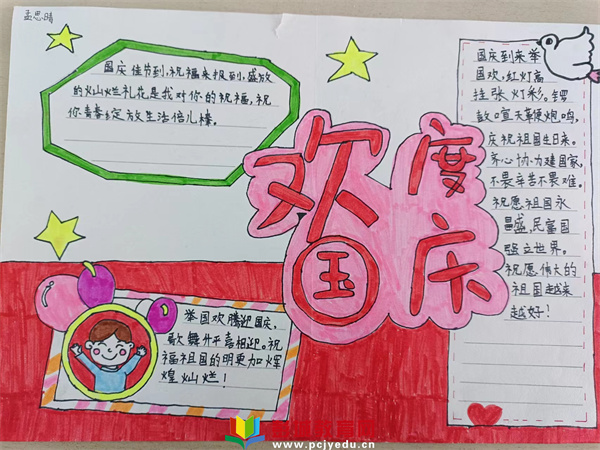 孟思晴
国庆佳节到,祝福来报到,盛放
的灿烂礼花是我对你的祝福,祝
你青春绽放生活倍儿棒。
欢度
国庆
举国欢腾迎国庆,
歌舞升平喜相迎。祝
福祖国的明更加辉
煌灿烂!
国庆到来举
国欢,红灯高
挂张灯彩。锣
鼓喧天鞭炮鸣,
庆祝祖国生日来。
齐心协力建国家,
不畏辛苦不畏难。
祝愿祖国永
昌盛,民富国
强立世界。
祝愿伟大的
祖国越来
越好!
www.pcjyedu.cn